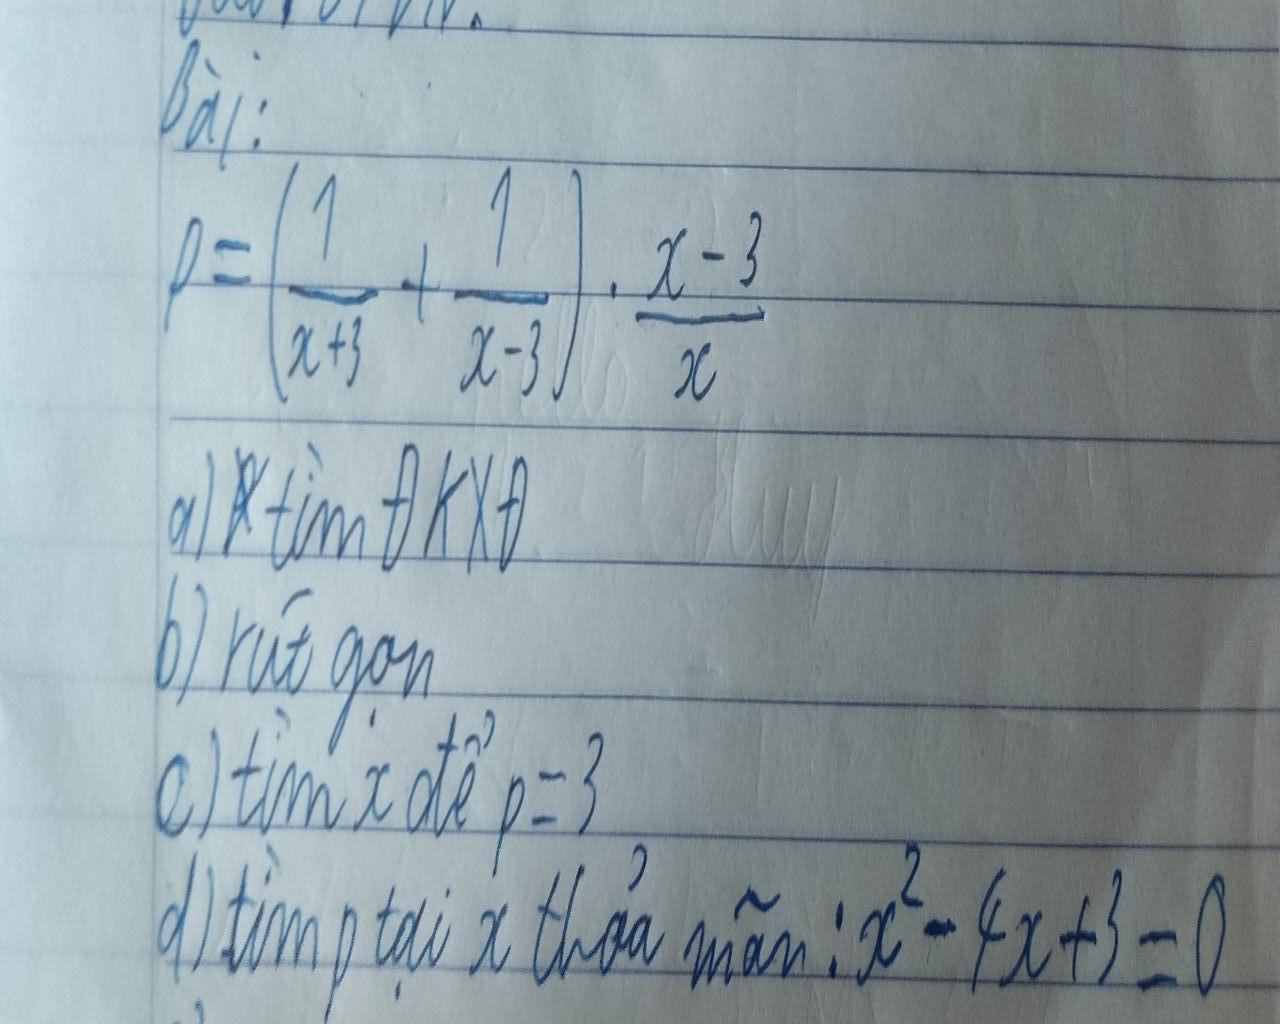 Bài:
P = (1/(x+3) + 1/(x-3)) . (x-3)/x
a) tìm ĐKXĐ
b) rút gọn
c) tìm x để p = 3
d) tìm p tại x thỏa mãn : x² - 4x + 3 = 0